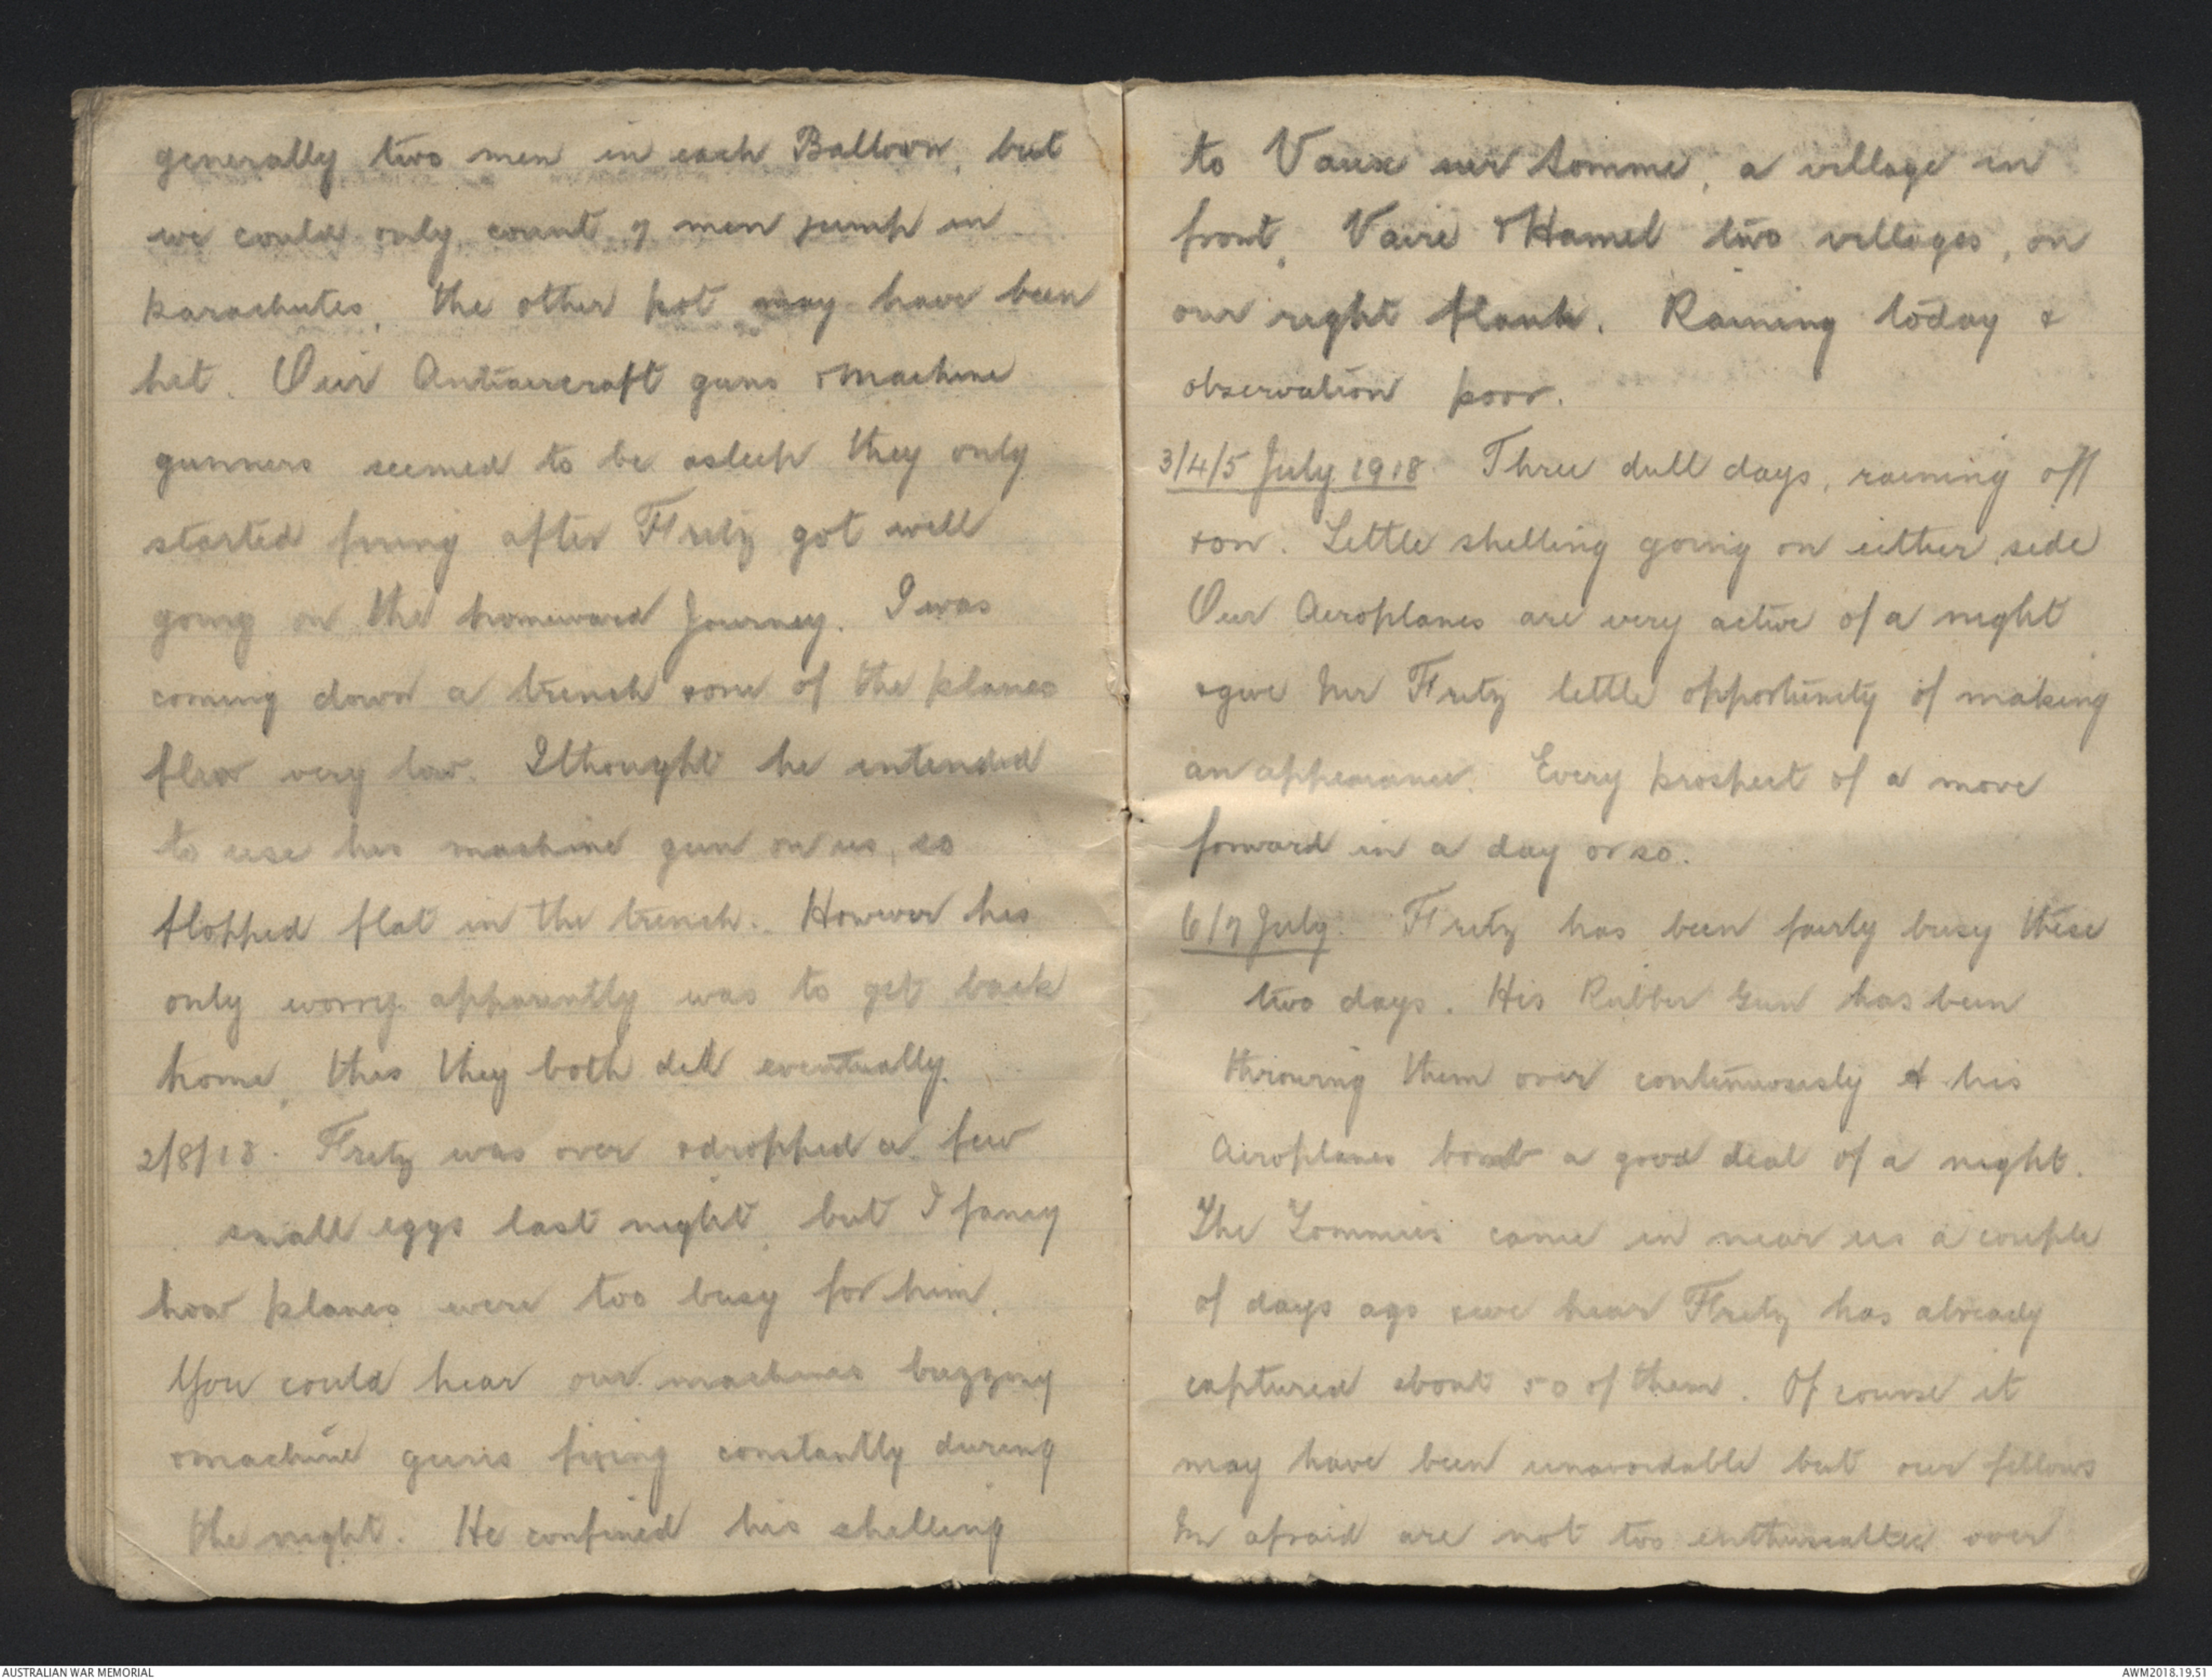 generally two men in each Balloon, but
we could only count 7 men jump in
parachutes, the other pot may have been
hit. Our Antiaircraft guns & machine
gunners seemed to be asleep they only
started firing after Fritz got well
going on the homeward journey. I was
coming down a trench & one of the planes
flew very low. I thought he intended
to use his machine gun on us, so
flopped flat in the trench. However his
only worry apparently was to get back
home, this they both did eventually.
2/8/18. Fritz was over & dropped a few
small eggs last night, but I fancy
how planes were too busy for him.
You could hear our machines buzzing
& machine guns firing constantly during
the night. He confined his shelling
to Vaux sur Somme, a village in
front, Vaire & Hamel two villages, on
our right flank. Raining today &
observation poor.
3/4/5 July 1918. Three dull days, raining off
& on. Little shelling going on either side
Our Aeroplanes are very active of a night
& give Mr Fritz little opportunity of making
an appearance. Every prospect of a move
forward in a day or so.
6/7 July. Fritz has been fairly busy these
two days. His Rubber Gun has been
throwing them over continuously & his
Aeroplanes bomb a good deal of a night.
The Tommies came in near us a couple
of days ago & we hear Fritz has already
captured about 50 of them. Of course it
may have been unavoidable but our fellows
Im afraid are not too enthusiastic over
AUSTRALIAN WAR MEMORIAL
AWM2018.19.51